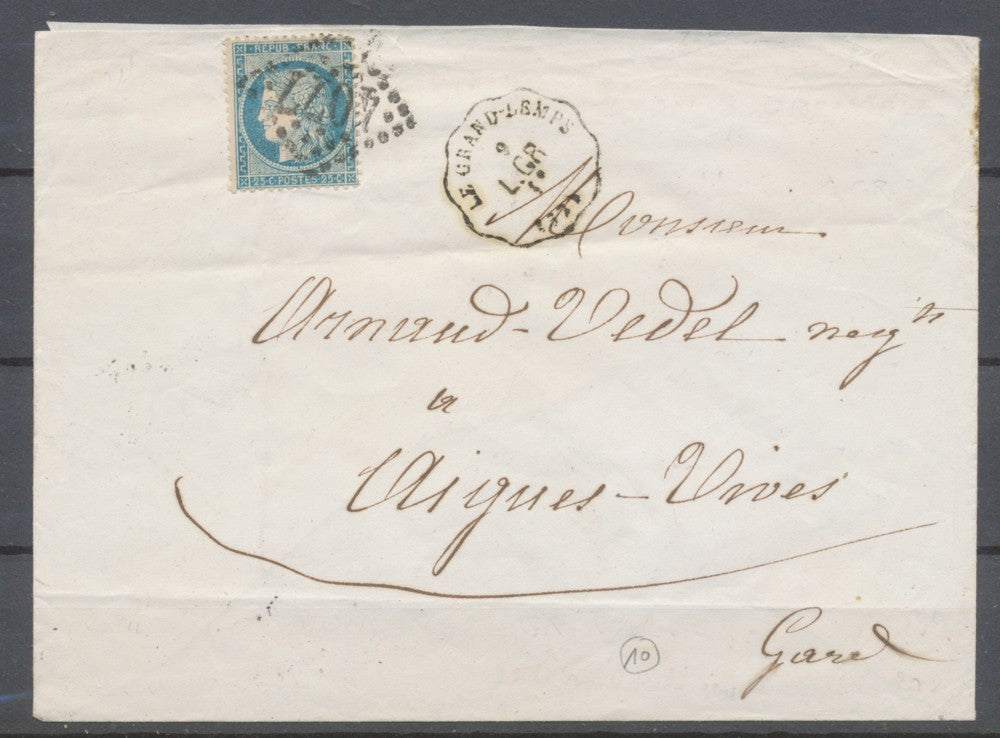 REPUB·FRANC·
25·C·POSTES·25·C
LE GRAND-LEMPS
9
L.GR
Monsieur
Arnaud-Vedel negts
à
Aigues-Vives
Gard
10